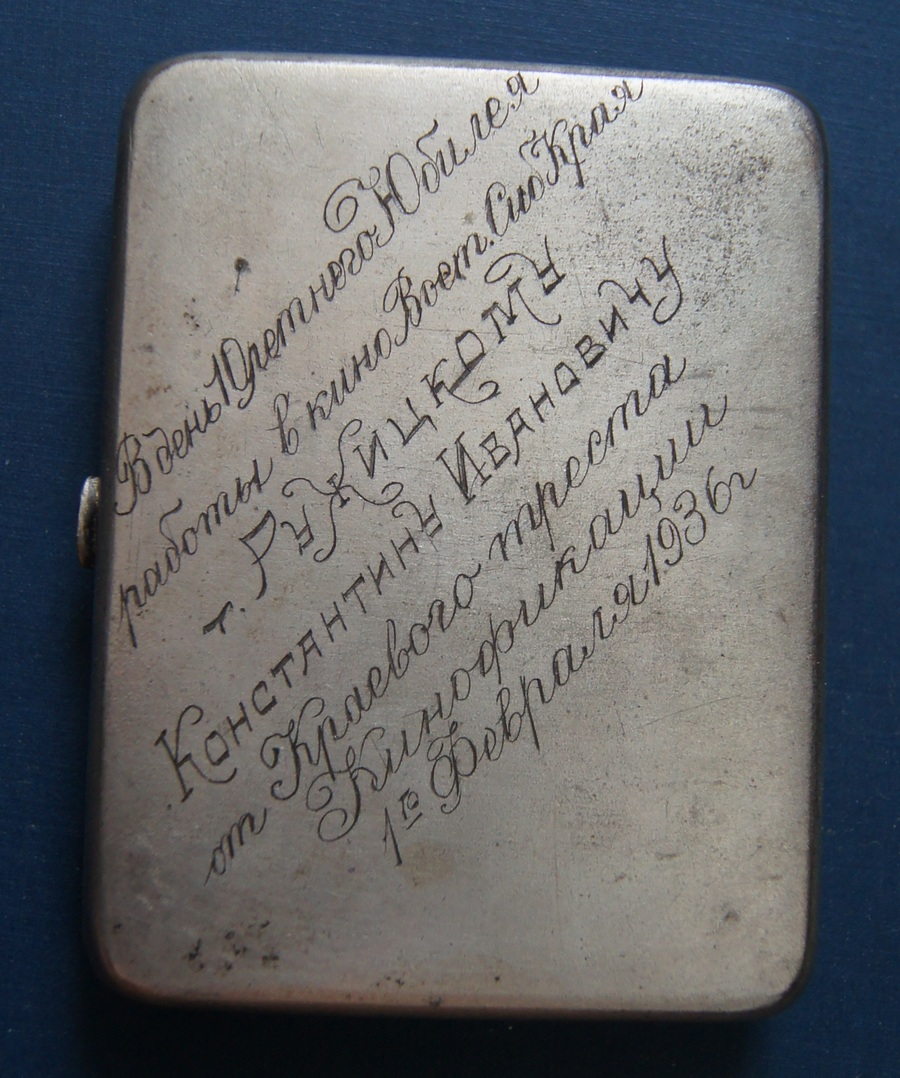 В день 10 летнего Юбилея
работы в кино Вост. Сиб Края
т. Ружицкому
Константину Ивановичу
от Краевого треста
Кинофикации
1го Февраля 1936 г